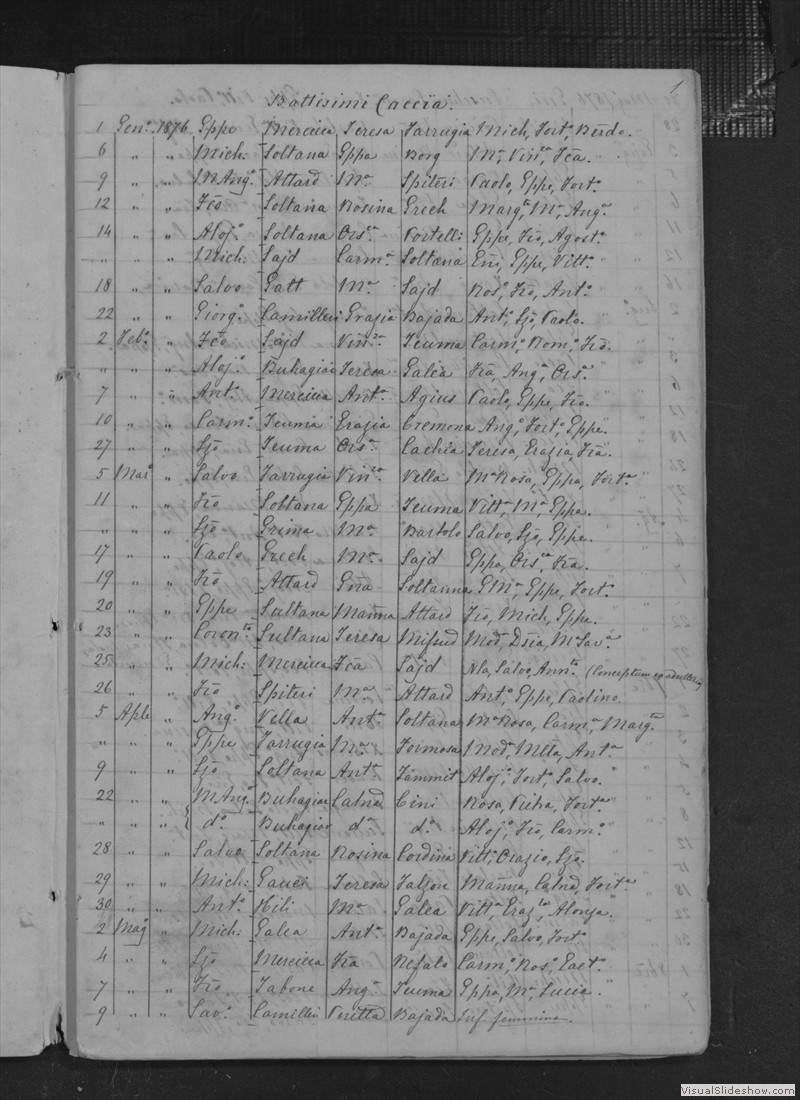 1
Battisimi Caccia.
1 Gen.º 1876 Eppe Mercieca Teresa Farrugia Mich, Fort, Berdo.
6 " " Mich: Soltana Eppa Borg Mª, Vinª, Fca.
9 " " MAngª Attard Mª Spiteri Paolo, Eppe, Fortª
12 " " Fco Soltana Rosina Grech Margª, Mª, Angª
14 " " Aloj.º Soltana Orsª Portelli Eppe, Fco, Agostª
" " " Mich: Sajd Carmª Soltana Eppe, Vittª
18 " " Salvo Gatt Mª Sajd Rosª, Fco, Antª
22 " " Giorg.º Camilleri Grazia Bajada Antª, Sjo, Paolo.
2 Feb.º " Fco Sajd Vinza Teuma Carmª, Romª, Fco.
" " " Aloj.º Buhagiar Teresa Galea Fca, Angª, Orsª
7 " " Antº Mercieca Antª Agius Paolo, Eppe, Fco.
10 " " Carmº Teuma Grazia Cremona Angº, Fort, Eppe.
27 " " Sjo Teuma Orsª Cachia Teresa, Grazia, Fca.
5 Mar " Salvo Farrugia Vinza Vella Mª Rosa, Eppa, Fortª
11 " " Fco Soltana Eppa Teuma Vittª Mª Eppa.
" " " Sjo Grima Mª Bartolo Salvo, Sjo, Eppe.
17 " " Paolo Grech Mª Sajd Eppa, Orsª, Fca.
19 " " Fco Attard Gna Soltanna Eppe, Fortª
20 " " Eppe Sultana Manna Attard Fco, Mich, Eppe.
23 " " Coronta Sultana Teresa Mifsud Modº, Mª Savª
25 " " Mich: Mercieca Fca Sajd Nla, Salvo, Annta (Conceptum ex adulterio
26 " " Fco Spiteri Mª Attard Antº, Eppe, Paolino.
5 Aple " Angº Vella Antª Soltana Mª Rosa, Carmª, Margta
" " " Eppe Farrugia Mª Formosa Modº, Antª
9 " " Sjo Soltana Antª Zammit Alojº, Fortº, Salvo.
22 " " MAngª Buhagiar Catna Cini Rosa, Pietra, Fortª
" " " dº Buhagiar dª dª Alojº, Fco, Carmº
28 " " Salvo Soltana Rosina Cordina Vittº, Orazio, Sjo.
29 " " Mich: Gauci Teresa Falzon Manna, Catna, Fortª
30 " " Antº Hili Mª Galea Vittª, Graz, Alonza.
2 Mag " Mich: Galea Antª Bajada Eppe, Salvo, Fort
4 " " Sjo Mercieca Fca Refalo Carmº, Rosº, Gaetº
7 " " Fco Tabone Angª Teuma Eppa, Mª Lucia.
9 " " Savº Camilleri Bajada femmina.
VisualSlideshow.com